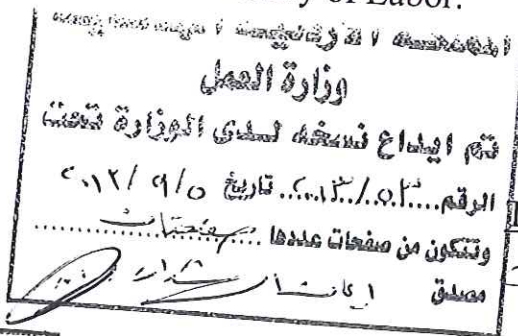 of Labor.
المملكة الأردنية الهاشمية
وزارة العمل
تم ايداع نسخه لدى الوزارة تحت
الرقم ..... تاريخ ٥/٩/٢٠١٢
وتتكون من صفحات عددها .....
مصدق